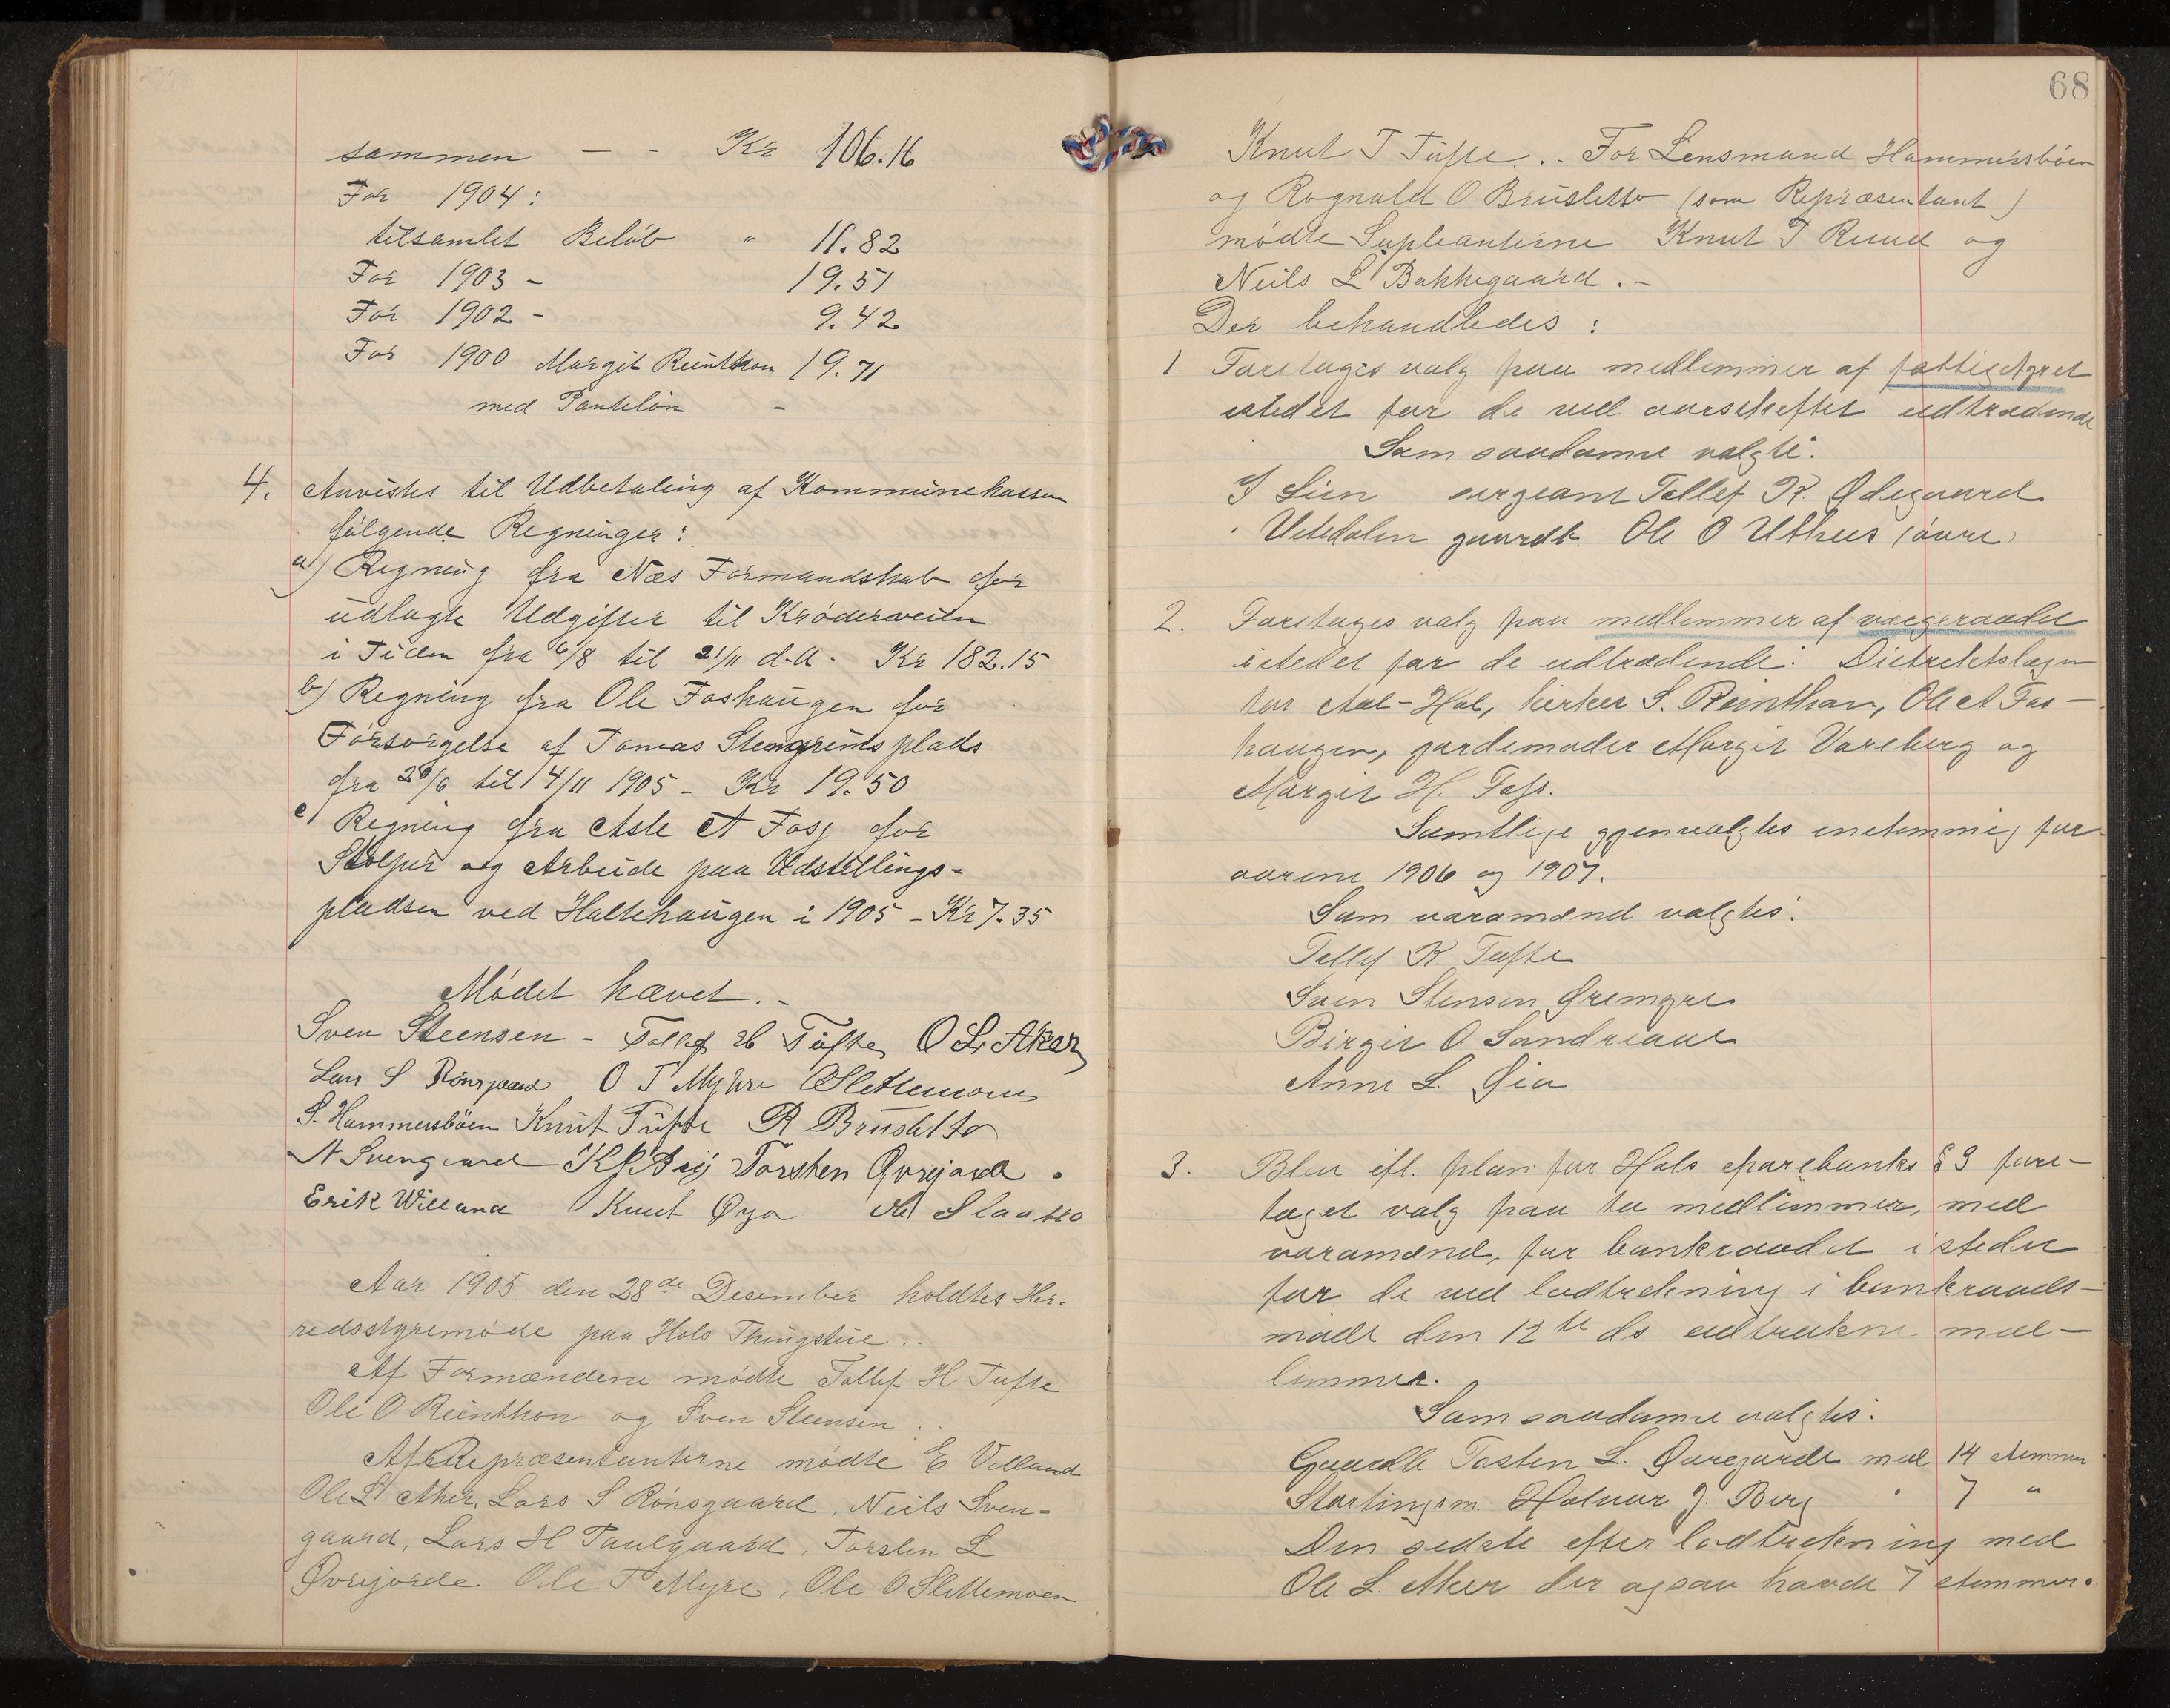 sammen - - Kr 106.16
For 1904:
tilsamlet Beløb " 11.82
For 1903 - 19.51
For 1902 - 9.42
For 1900 Margit Reinthon 19.71
med Pantelön -
4. Anvistes til Udbetaling af Kommunekassen
følgende Regninger:
a) Regning fra Næs Formandskab for
udlagte Udgifter til Krøderveien
i Tiden fra 6/8 til 21/11 d.A. Kr 182.15
b) Regning fra Ole Foshaugen for
Forsorgelse af Tomas Stengrimsplads
fra 20/6 til 14/11 1905 - Kr 19.50
c) Regning fra Asle A Foss for
Stolper og Arbeide paa Udstillings-
pladsen ved Haltehaugen i 1905 - Kr 7.35
Mødet hævet. -
Sven Steensen - Tollef H Tufte O L Aker
Lars S Rønsgaard O T Myhre O Slettemoen
S. Hammersbøen Knut Tufte R Brusletto
N Svengaard Torsten Øvrejorde .
Erik Willand Knut Øya Slaatto
Aar 1905 den 28de Desember holdtes Her-
redsstyremøde paa Hols Thingstue ..
Af Formændene mødte Tollef H Tufte
Ole O Reinthon og Sven Steensen ..
Af Repræsentanterne mødte E Villand
Ole L Aker, Lars S Rønsgaard, Neils Sven-
gaard, Lars H Paulgaard, Torsten L
Øvrejorde Ole T Myre, Ole O Slettemoen
68
Knut T Tufte .. For Lensmand Hammersbøen
og Rognald O Brusletto (som Repræsentant)
mødte Supleanterne Knut T Ruud og
Neils L Bakkegaard . -
Der behandledes :
1. Foretages valg paa medlemmer af fattigstyret
istedet for de ved aarsskiftet udtrædende
Som saadanne valgte:
I Lien sergeant Tollef K. Ødegaard
" Ustedalen gaardb. Ole O. Uthus (øvre)
2. Foretages valg paa medlemmer af vægeraadet
istedet for de udtrædende: Distriktslægen
for Aal-Hol, kirkes. S. Reinthon, Ole A Fos-
haugen, jordemoder Margit Vareberg og
Margit H. Foss.
Samtlige gjenvalgtes enstemmig for
aarene 1906 og 1907.
Som varamænd valgtes:
Tollef K. Tufte
Sven Stensen Gremgre
Birgit O Sandreaae
Anne L. Øia
3. Blev ifl. plan for Hols sparebanks § 3 fore-
taget valg paa to medlemmer, med
varamænd, for bankraadet istedet
for de ved lodtrekning i bankraads-
møde den 12te ds udtrukne med-
lemmer.
Som saadanne valgtes:
Gaardb. Tosten L. Øvregjorde med 14 stemmer
Stortingsm. Halvar J. Berg " 7 "
Den sidste efter lodtrekning med
Ole L. Aker der ogsaa havde 7 stemmer.